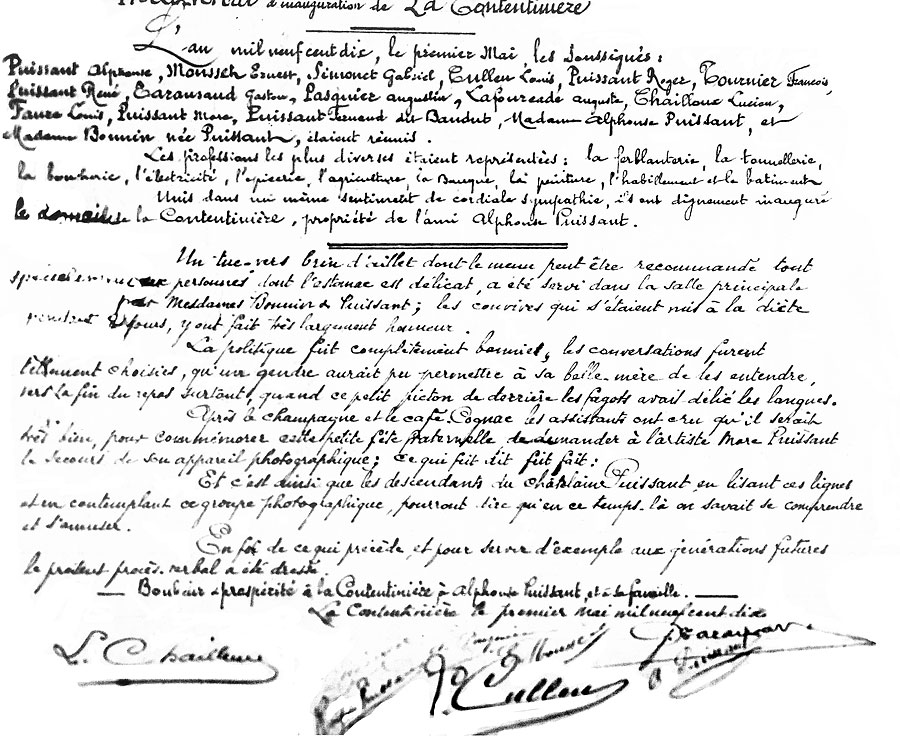 d'inauguration de La Contentinière
L'an mil neuf cent dix, le premier Mai, les Soussignés :
Puissant Alphonse, Monsseh Ernest, Simonet Gabriel, Cullen Louis, Puissant Roger, Tournier Francois,
Puissant René, Taransaud Gaston, Pasquier augustin, Lafourcade auguste, Chailloux Lucien,
Faure Louis, Puissant More, Puissant Fernand dit Bandut, Madame Alphonse Puissant, et
Madame Bonnin née Puissant, étaient réunis.
Les professions les plus diverses étaient représentées : la ferblanterie, la tonnellerie,
la boucherie, l'électricité, l'épicerie, l'agriculture, la Banque, la peinture, l'habillement et le batiment
Unis dans un même sentiment de cordiale sympathie, ils ont dignement inauguré
le de la Contentinière, propriété de l'ami Alphonse Puissant.
Un tue-vers brin d'œillet dont le menu peut être recommandé tout
spécialement aux personnes dont l'estomac est délicat, a été servi dans la salle principale
par Mesdames Bonnin & Puissant ; les convives qui s'étaient mis à la diète
pendant jours, y ont fait très largement honneur.
La politique fut complètement bannie, les conversations furent
tellement choisies, qu'un gendre aurait pu permettre à sa belle-mère de les entendre,
vers la fin du repas surtout, quand ce petit picton de derrière les fagots avait délié les langues.
Après le champagne et le café Cognac les assistants ont cru qu'il serait
très bien, pour commémorer cette petite fête fraternelle de demander à l'artiste More Puissant
le secours de son appareil photographique ; ce qui fut dit fut fait :
Et c'est ainsi que les descendants du châtelain Puissant, en lisant ces lignes
et en contemplant ce groupe photographique, pourront dire qu'en ce temps-là on savait se comprendre
et s'amuser.
En foi de ce qui précède, et pour servir d'exemple aux générations futures
le présent procès-verbal a été dressé.
— Bonheur & prospérité à la Contentinière à Alphonse Puissant, et à sa famille. —
La Contentinière le premier mai mil neuf cent dix
L. Chailloux
Cullen